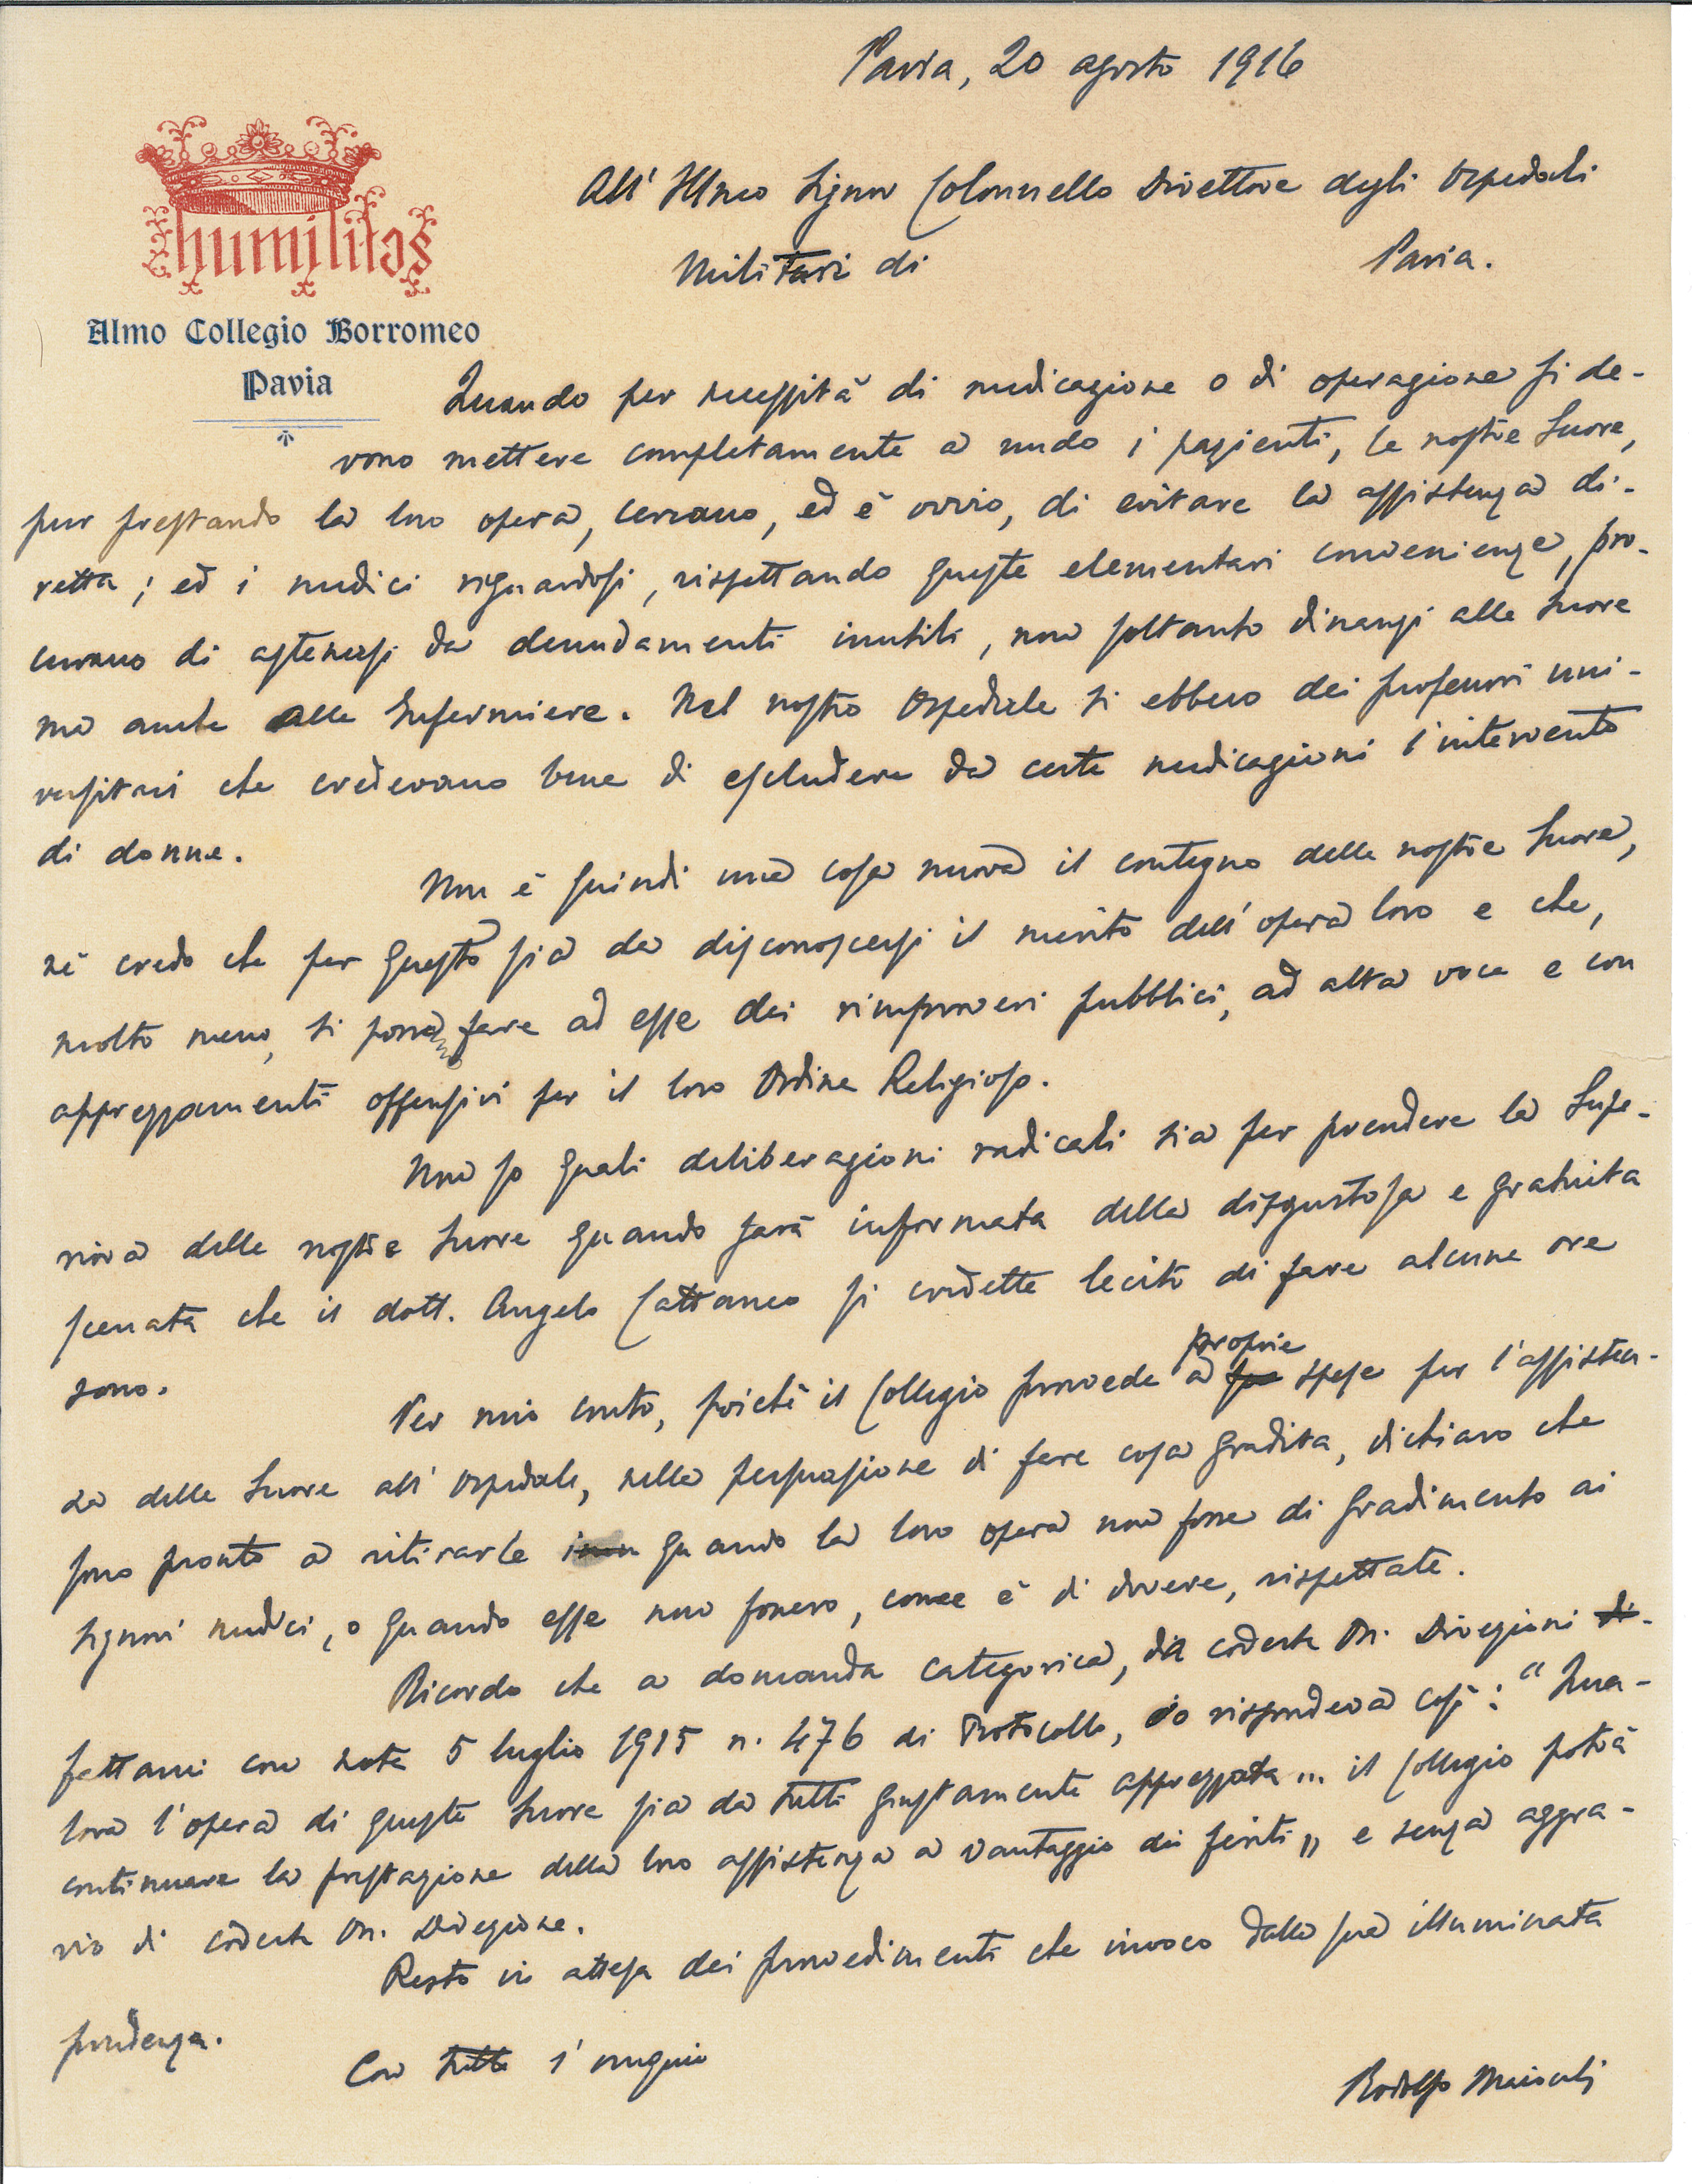 Pavia, 20 agosto 1916
humilitas
Almo Collegio Borromeo
Pavia
All' Illmo Signor Colonnello Direttore degli Ospedali
Militari di Pavia.
Quando per necessità di medicazione o di operazione si de-
vono mettere completamente a nudo i pazienti, le nostre Suore,
pur prestando la loro opera, cercano, ed è ovvio, di evitare la assistenza di-
retta; ed i medici riguardosi, rispettando queste elementari convenienze, pro-
curano di astenersi da denudamenti inutili, non soltanto dinanzi alle Suore
ma anche alle Infermiere. Nel nostro Ospedale si ebbero dei professori uni-
versitari che credevano bene di escludere da certe medicazioni l'intervento
di donne.
Non è quindi una cosa nuova il contegno delle nostre Suore,
nè credo che per questo sia da disconoscersi il merito dell'opera loro e che,
molto meno, si possa fare ad esse dei rimproveri pubblici, ad alta voce e con
apprezzamenti offensivi per il loro Ordine Religioso.
Non so quali deliberazioni radicali sia per prendere la Supe-
riora delle nostre Suore quando sarà informata della disgustosa e gratuita
scenata che il dott. Angelo Cattaneo si credette lecito di fare alcune ore
sono.
Per mio conto, poichè il Collegio provvede a proprie spese per l'assisten-
za delle Suore all'Ospedale, nella persuasione di fare cosa gradita, dichiaro che
sono pronto a ritirarle quando la loro opera non fosse di gradimento ai
Signori medici, o quando esse non fossero, come è di dovere, rispettate.
Ricordo che a domanda categorica, da codesta On. Direzioni di-
fattami con nota 5 luglio 1915 n. 476 di Protocollo, io rispondeva così: "Qua-
lora l'opera di queste Suore sia da tutti giustamente apprezzata ... il Collegio potrà
continuare la prestazione della loro assistenza a vantaggio dei feriti" e senza aggra-
vio di codesta On. Direzione.
Resto in attesa dei provvedimenti che invoco dalla sua illuminata
prudenza.
Con tutto l'ossequio
Rodolfo Maiocchi